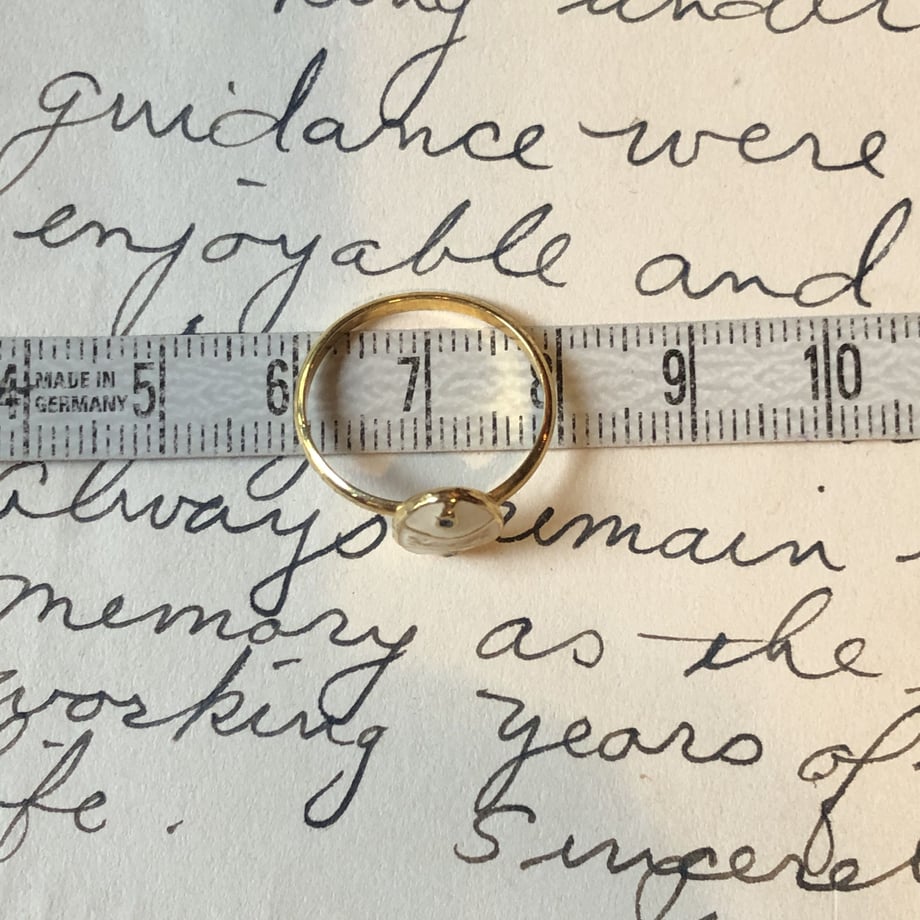 under
guidance were
enjoyable and
4 MADE IN GERMANY 5 6 7 8 9 10
always remain
memory as the
working years of
fe.
Sincerel